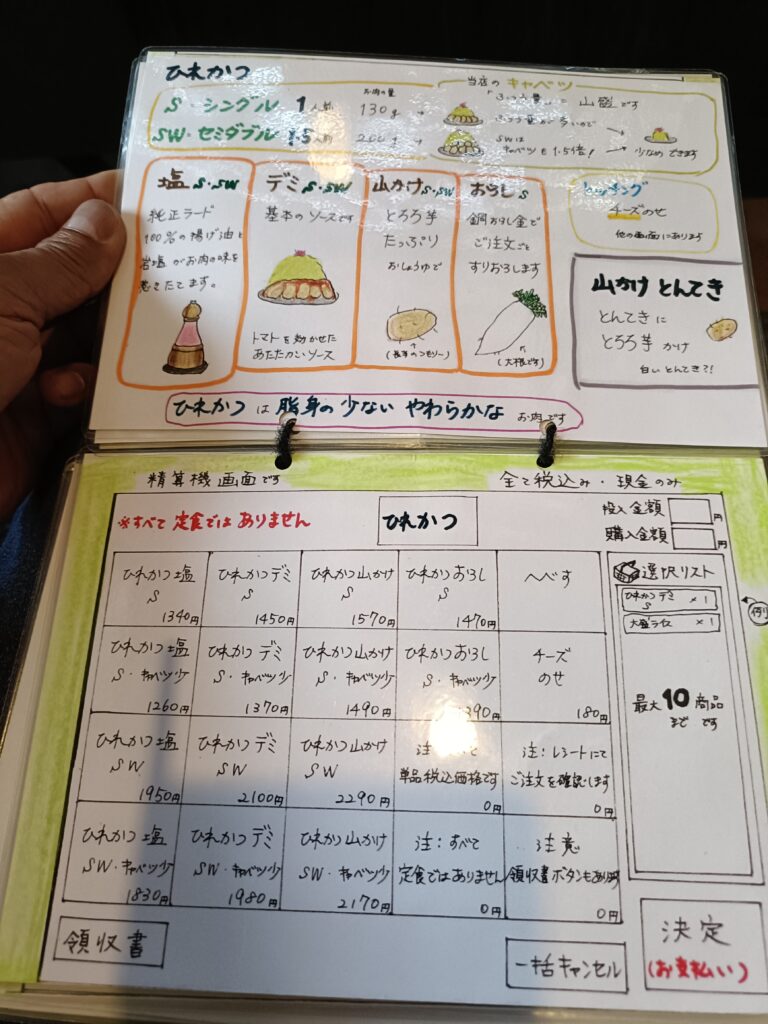 ひれかつ
S・シングル 1人前
SW・セミダブル 1.5人前
お肉の量
130g
200g
当店の キャベツ
「ふつう量」= 山盛です
ふつう量が多いので
SWは
キャベツも1.5倍!
少なめできます
塩 S・SW
純正ラード
100%の揚げ油と
岩塩がお肉の味を
惹きたてます。
デミ S・SW
基本のソースです
トマトを効かせた
あたたかいソース
山かけ S・SW
とろろ芋
たっぷり
おしょうゆで
(長芋のつもりー)
おろし S
鋼おろし金で
ご注文ごと
すりおろします
(大根です)
トッピング
チーズのせ
他の画面にあります
山かけ とんてき
とんてきに
とろろ芋 かけ
白いとんてき?!
ひれかつ は 脂身の 少ない やわらかな お肉です
精算機画面です
全て税込み・現金のみ
※すべて 定食では ありません
ひれかつ
投入金額 円
購入金額 円
ひれかつ 塩
S
1340円
ひれかつ デミ
S
1450円
ひれかつ 山かけ
S
1570円
ひれかつ おろし
S
1470円
へべす
ひれかつ 塩
S・キャベツ少
1260円
ひれかつ デミ
S・キャベツ少
1370円
ひれかつ 山かけ
S・キャベツ少
1490円
ひれかつ おろし
S・キャベツ少
1390円
チーズ
のせ
180円
ひれかつ 塩
SW
1950円
ひれかつ デミ
SW
2100円
ひれかつ 山かけ
SW
2290円
注:
単品税込価格です
0円
注:レシートにて
ご注文を確認します
0円
ひれかつ 塩
SW・キャベツ少
1830円
ひれかつ デミ
SW・キャベツ少
1980円
ひれかつ 山かけ
SW・キャベツ少
2170円
注:すべて
定食ではありません
0円
注意
領収書ボタンもあります
0円
選択リスト
ひれかつ デミ
S ×1
大盛ライス ×1
例
最大10商品
まで です
領収書
一括キャンセル
決定
(お支払い)